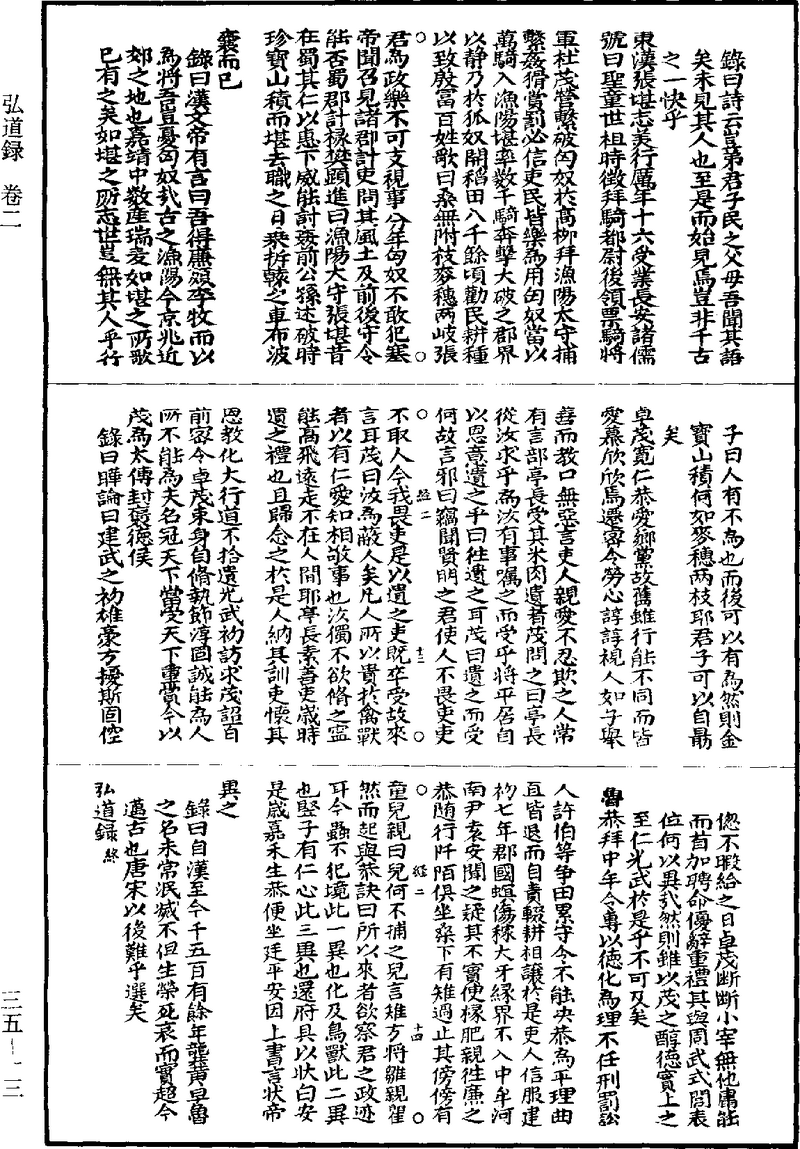 弘道録 卷二
錄曰詩云豈弟君子民之父母吾聞其語
矣未見其人也至是而始見焉豈非千古
之一快乎
東漢張堪志美行厲年十六受業長安諸儒
號曰聖童世祖時徵拜騎都尉後領票騎將
軍杜茂營繫破匈奴於高柳拜漁陽太守捕
繫姦猾賞罰必信吏民皆樂為用匈奴當以
萬騎入漁陽堪率數千騎奔擊大破之郡界
以靜乃於狐奴開稻田八千餘頃勸民耕種
以致殷富百姓歌曰桑無附枝麥穗兩岐張
君為政樂不可支視事八年匈奴不敢犯塞
帝聞召見諸郡計吏問其風土及前後守令
能否蜀郡計椽樊顯進曰漁陽大守張堪昔
在蜀其仁以惠下威能討姦前公孫述破時
珍寶山積而堪去職之日乘折轅之車布被
囊而已
錄曰漢文帝有言曰吾得廉頗李牧而以
為將吾豈憂匈奴哉古之漁陽今京兆近
郊之地也嘉靖中數產瑞麥如堪之所歌
已有之矣如堪之所志世豈無其人乎行
子曰人有不為也而後可以有為然則金
寶山積何如麥穗兩枝耶君子可以自勗
矣
卓茂寬仁恭愛鄉黨故舊雖行能不同而皆
愛慕欣欣焉遷密令勞心諄諄視人如子舉
善而教口無惡言吏人親愛不忍欺之人常
有言部亭長受其米肉遺者茂問之曰亭長
從汝求乎為汝有事囑之而受乎將平居自
以恩意遺之乎曰往遺之耳茂曰遺之而受
何故言邪曰竊聞賢明之君使人不畏吏吏
不取人今我畏吏是以遺之吏既卒受故來
言耳茂曰汝為敝人矣凡人所以貴於禽獸
者以有仁愛知相敬事也汝獨不欲脩之寧
能高飛遠走不在人間耶亭長素善吏歲時
遺之禮也且歸念之於是人納其訓吏懷其
恩教化大行道不拾遺光武初訪求茂詔曰
前密令卓茂束身自脩執節淳固誠能為人
所不能為夫名冠天下當受天下重賞今以
茂為太傅封褒德侯
錄曰曄論曰建武之初雄豪方擾斯固倥
傯不暇給之日卓茂斷斷小宰無他庸能
而首加聘命優辭重禮其與周武式閭表
位何以異哉然則雖以茂之醇德實上之
至仁光武於是乎不可及矣
魯恭拜中牟令專以德化為理不任刑罰訟
人許伯等爭田累守令不能決恭為平理曲
直皆退而自責輟耕相讓於是吏人信服建
初七年郡國螟傷稼犬牙緣界不入中牟河
南尹袁安聞之疑其不實使椽肥親往廉之
恭随行阡陌俱坐桑下有雉過止其傍傍有
童兒親曰兒何不捕之兒言雉方將雛親瞿
然而起與恭訣曰所以來者欲察君之政迹
耳今蟲不犯境此一異也化及鳥獸此二異
也竪子有仁心此三異也還府具以狀白安
是歲嘉禾生恭便坐廷平安因上書言狀帝
異之
錄曰自漢至今千五百有餘年龔黃卓魯
之名未常泯滅不但生榮死哀而實超今
邁古也唐宋以後難乎選矣
弘道録 終
經二 十三
經二 十四
三五－一三